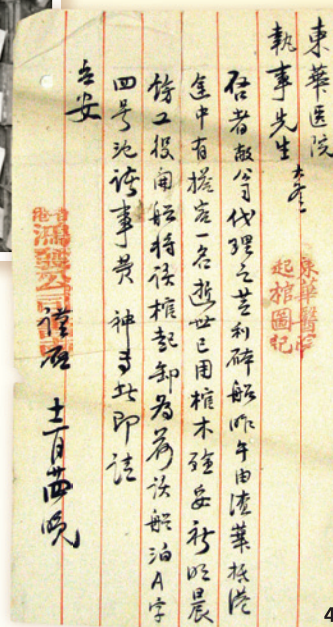 東華医院
執事先生大鑒
啓者敝公司代理之芝利碎船昨午由渣華抵港
途中有搭客一名逝世已用棺木殮妥祈明晨
飭工役用船將該棺起卸為荷該船泊A字
四号泡諸事費神専此即請
台安
月廿四晚
東華醫院
起棺圖記
公司書柬
4